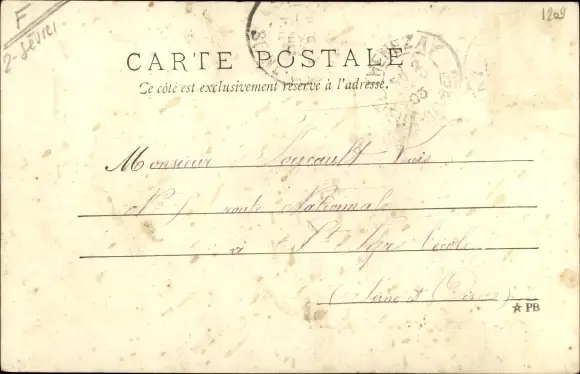 F
2-Sèvres
1209
CARTE POSTALE
Ce côté est exclusivement réservé à l'adresse.
THENEZAY
03
FEVR
Monsieur Foucault Louis
route Nationale
à St Cyr l'école
(Seine et Oise)
☆ PB